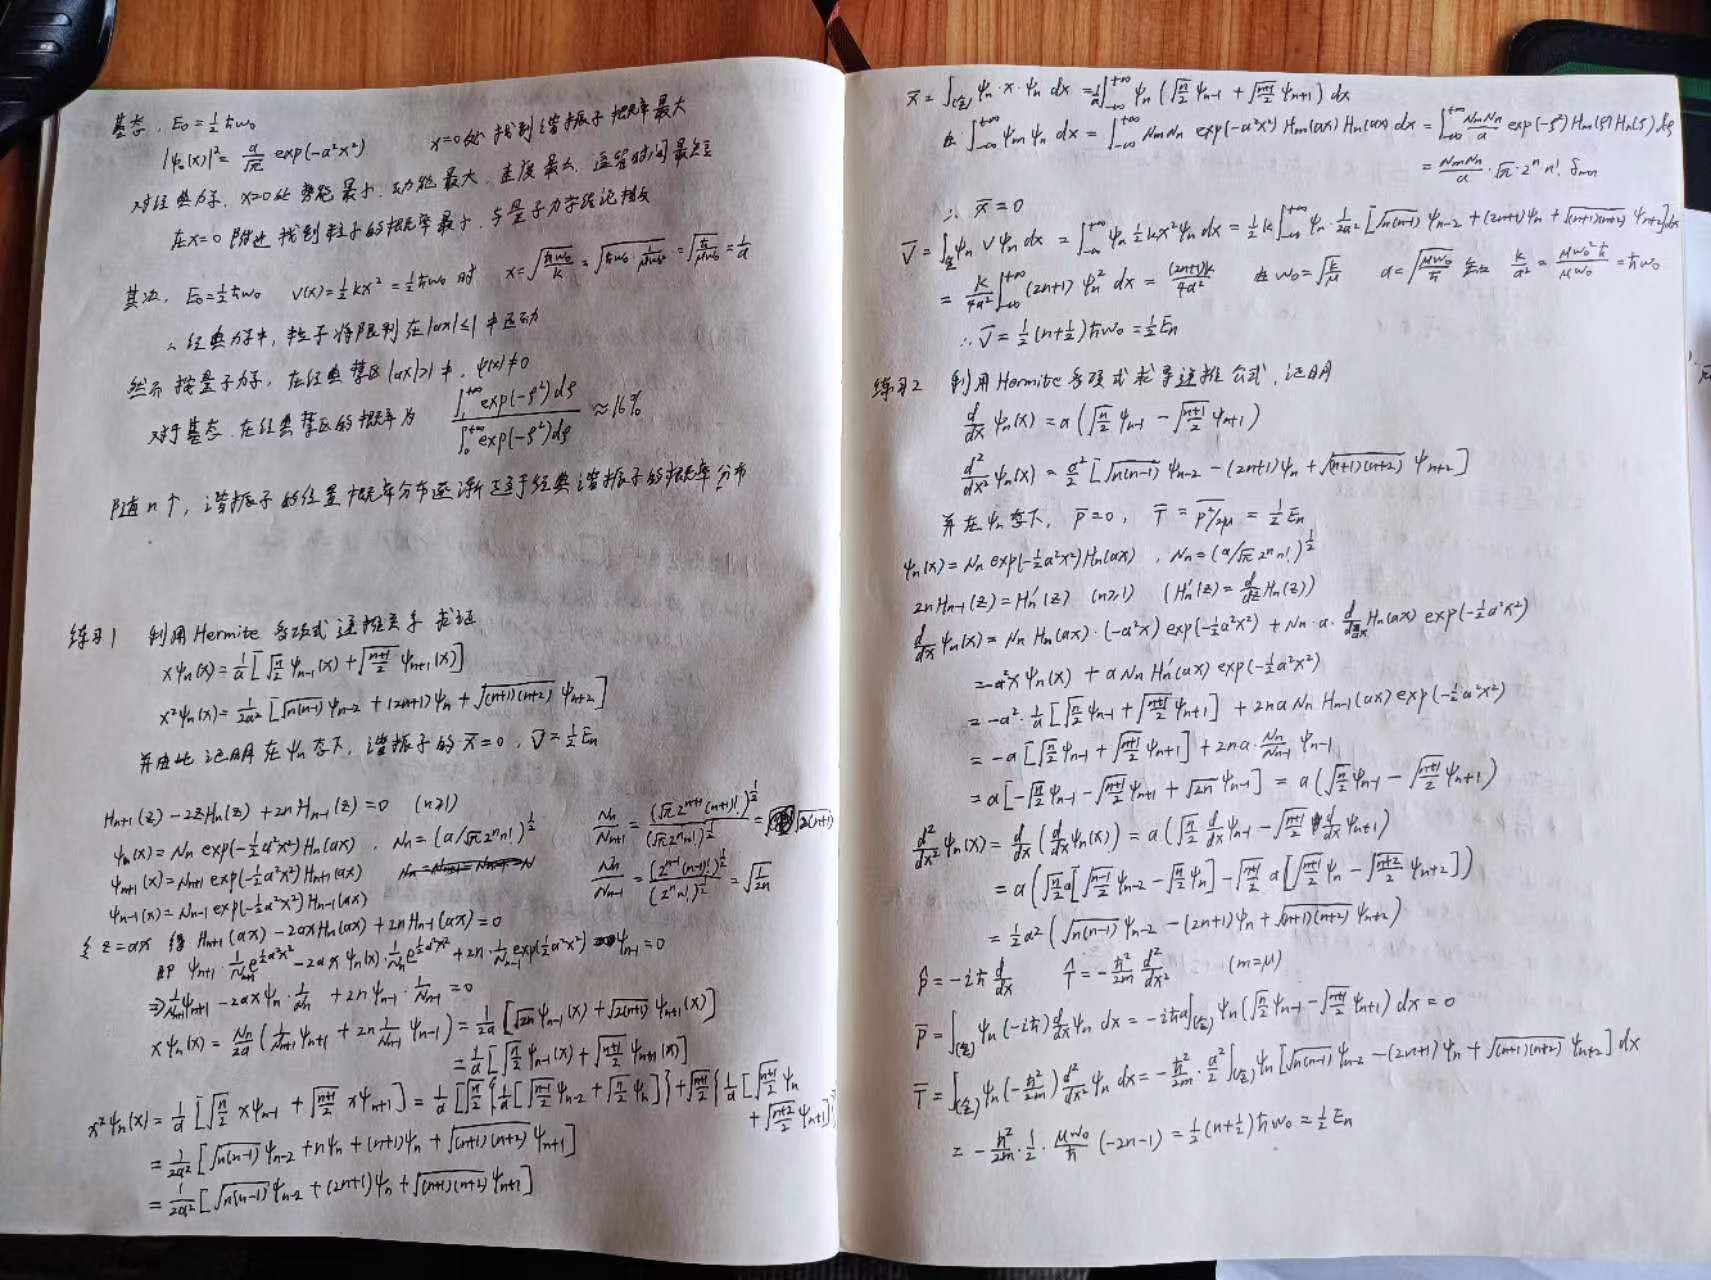 基态, E₀=½ħω₀
|ψ₀(x)|²= α/√π exp(-α²x²)    x=0处 找到谐振子概率最大
对经典力学, x=0处 势能最小, 动能最大, 速度最大, 逗留时间最短
在x=0 附近 找到粒子的概率最小, 与量子力学结论相反
基态, E₀=½ħω₀   V(x)=½kx²=½ħω₀ 时   x=√(ħω₀/k)=√(ħω₀·1/μω₀²)=√(ħ/μω₀)=1/α
∴ 经典力学中, 粒子将限制在|αx|≤1 中运动
然而 按量子力学, 在经典禁区|αx|>1 中, ψ(x)≠0
对于基态, 在经典禁区的概率为 ∫₁^{+∞}exp(-ξ²)dξ / ∫₀^{+∞}exp(-ξ²)dξ ≈16%
随n↑, 谐振子的位置概率分布逐渐趋于经典谐振子的概率分布
练习1   利用Hermite多项式递推关系 求证
xψn(x)=1/α[√(n/2) ψn-1(x)+√((n+1)/2) ψn+1(x)]
x²ψn(x)=1/2α² [√(n(n-1)) ψn-2 + (2n+1)ψn + √((n+1)(n+2)) ψn+2]
并由此证明在ψn态下, 谐振子的 x̄=0, V̄=½En
Hn+1(z)-2zHn(z)+2nHn-1(z)=0   (n≥1)
ψn(x)=Nn exp(-½α²x²)Hn(αx), Nn=(α/√π2ⁿn!)^½   Nn/Nn+1 = (√π2ⁿ⁺¹(n+1)!)^½/(√π2ⁿn!)^½ = √(2(n+1))
ψn+1(x)=Nn+1 exp(-½α²x²)Hn+1(αx)
ψn-1(x)=Nn-1 exp(-½α²x²)Hn-1(αx)   Nn/Nn-1 = (2ⁿ⁻¹(n-1)!)^½/(2ⁿn!)^½ = √(1/2n)
令z=αx 得 Hn+1(αx)-2αxHn(αx)+2nHn-1(αx)=0
即 ψn+1·1/Nn+1 e^{½α²x²} -2αxψn(x)·1/Nn e^{½α²x²}+2n·1/Nn-1 exp(½α²x²)ψn-1=0
⇒ 1/Nn+1 ψn+1-2αxψn·1/Nn+2nψn-1·1/Nn-1=0
xψn(x)= Nn/2α (1/Nn+1 ψn+1+2n 1/Nn-1 ψn-1)=1/2α [√(2n)ψn-1(x)+√(2(n+1)) ψn+1(x)]
=1/α[√(n/2) ψn-1(x)+√((n+1)/2) ψn+1(x)]
x²ψn(x)=1/α [√(n/2) xψn-1+√((n+1)/2) xψn+1]=1/α [√(n/2){1/α[√((n-1)/2) ψn-2+√(n/2)ψn]}+√((n+1)/2){1/α[√((n+1)/2)ψn
+√((n+2)/2)ψn+1]}
=1/2α² [√(n(n-1)) ψn-2+nψn+(n+1)ψn+√((n+1)(n+2)) ψn+1]
=1/2α² [√(n(n-1)) ψn-2+(2n+1)ψn+√((n+1)(n+2)) ψn+1]
x̄=∫(全) ψn·x·ψn dx=1/α∫_{-∞}^{+∞} ψn (√(n/2) ψn-1+√((n+1)/2) ψn+1) dx
由∫_{-∞}^{+∞} ψmψn dx=∫_{-∞}^{+∞} NmNn exp(-α²x²)Hm(αx)Hn(αx)dx=∫_{-∞}^{+∞} NmNn/α exp(-ξ²)Hm(ξ)Hn(ξ)dξ
= NmNn/α ·√π·2ⁿ·n! δmn
∴ x̄=0
V̄=∫全 ψn V ψn dx=∫_{-∞}^{+∞} ψn ½kx²ψn dx=½k∫_{-∞}^{+∞} ψn·1/2α² [√(n(n-1)) ψn-2+(2n+1)ψn+√((n+1)(n+2)) ψn+2]dx
= k/4α² ∫_{-∞}^{+∞} (2n+1)ψn² dx= (2n+1)k/4α²   由ω₀=√(k/μ)   α=√(μω₀/ħ) 知 k/α²= μω₀²ħ/μω₀ =ħω₀
∴ V̄=½(n+½)ħω₀=½En
练习2   利用Hermite多项式求导递推公式, 证明
d/dx ψn(x)=α(√(n/2) ψn-1-√((n+1)/2) ψn+1)
d²/dx² ψn(x)= α²/2 [√(n(n-1)) ψn-2-(2n+1)ψn+√((n+1)(n+2)) ψn+2]
并在ψn态下, p̄=0, T̄=p²/2μ=½En
ψn(x)=Nn exp(-½α²x²)Hn(αx), Nn=(α/√π2ⁿn!)^½
2nHn-1(z)=H'n(z)   (n≥1)   (H'n(z)=d/dz Hn(z))
d/dx ψn(x)=Nn Hn(αx)·(-α²x)exp(-½α²x²)+Nn·α·d/dx Hn(αx)exp(-½α²x²)
=-α²xψn(x)+αNnH'n(αx)exp(-½α²x²)
=-α²·1/α[√(n/2)ψn-1+√((n+1)/2)ψn+1]+2nαNnHn-1(αx)exp(-½α²x²)
=-α[√(n/2)ψn-1+√((n+1)/2)ψn+1]+2nα·Nn/Nn-1 ψn-1
=α[-√(n/2)ψn-1-√((n+1)/2)ψn+1+√(2n)ψn-1]=α(√(n/2)ψn-1-√((n+1)/2)ψn+1)
d²/dx² ψn(x)=d/dx(d/dx ψn(x))=α(√(n/2) d/dx ψn-1-√((n+1)/2) d/dx ψn+1)
=α(√(n/2)α[√((n-1)/2)ψn-2-√(n/2)ψn]-√((n+1)/2)α[√((n+1)/2)ψn-√((n+2)/2)ψn+2])
=½α²(√(n(n-1)) ψn-2-(2n+1)ψn+√((n+1)(n+2)) ψn+2)
p̂=-iħ d/dx   T̂=-ħ²/2m d²/dx²   (m=μ)
p̄=∫(全) ψn(-iħ)d/dx ψn dx=-iħα∫(全) ψn(√(n/2)ψn-1-√((n+1)/2)ψn+1)dx=0
T̄=∫(全) ψn(-ħ²/2m)d²/dx² ψn dx=-ħ²/2m·α²/2∫(全) ψn[√(n(n-1)) ψn-2-(2n+1)ψn+√((n+1)(n+2)) ψn+2]dx
=-ħ²/2m·½·μω₀/ħ(-2n-1)=½(n+½)ħω₀=½En